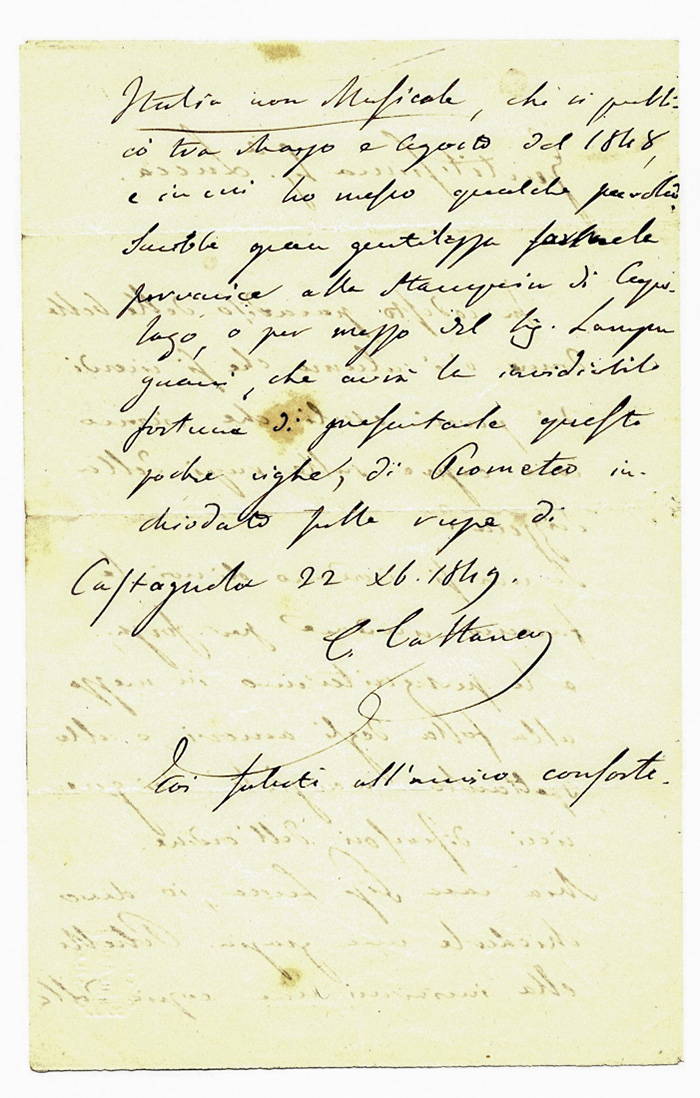 Italia non Musicale, che si pubbli-
cò tra Marzo e Agosto del 1848,
e in cui ho messo qualche parola.
Sarebbe gran gentilezza farmela
pervenire alla Stamperia di Capo-
lago, o per mezzo del Sig. Lampu
gnani, che avrà la invidiabile
fortuna di presentarle queste
poche righe, di Prometeo in-
chiodato sulla rupe di
Castagnola 22 Xb. 1849.
C. Cattaneo
Coi saluti all'amico conforte.